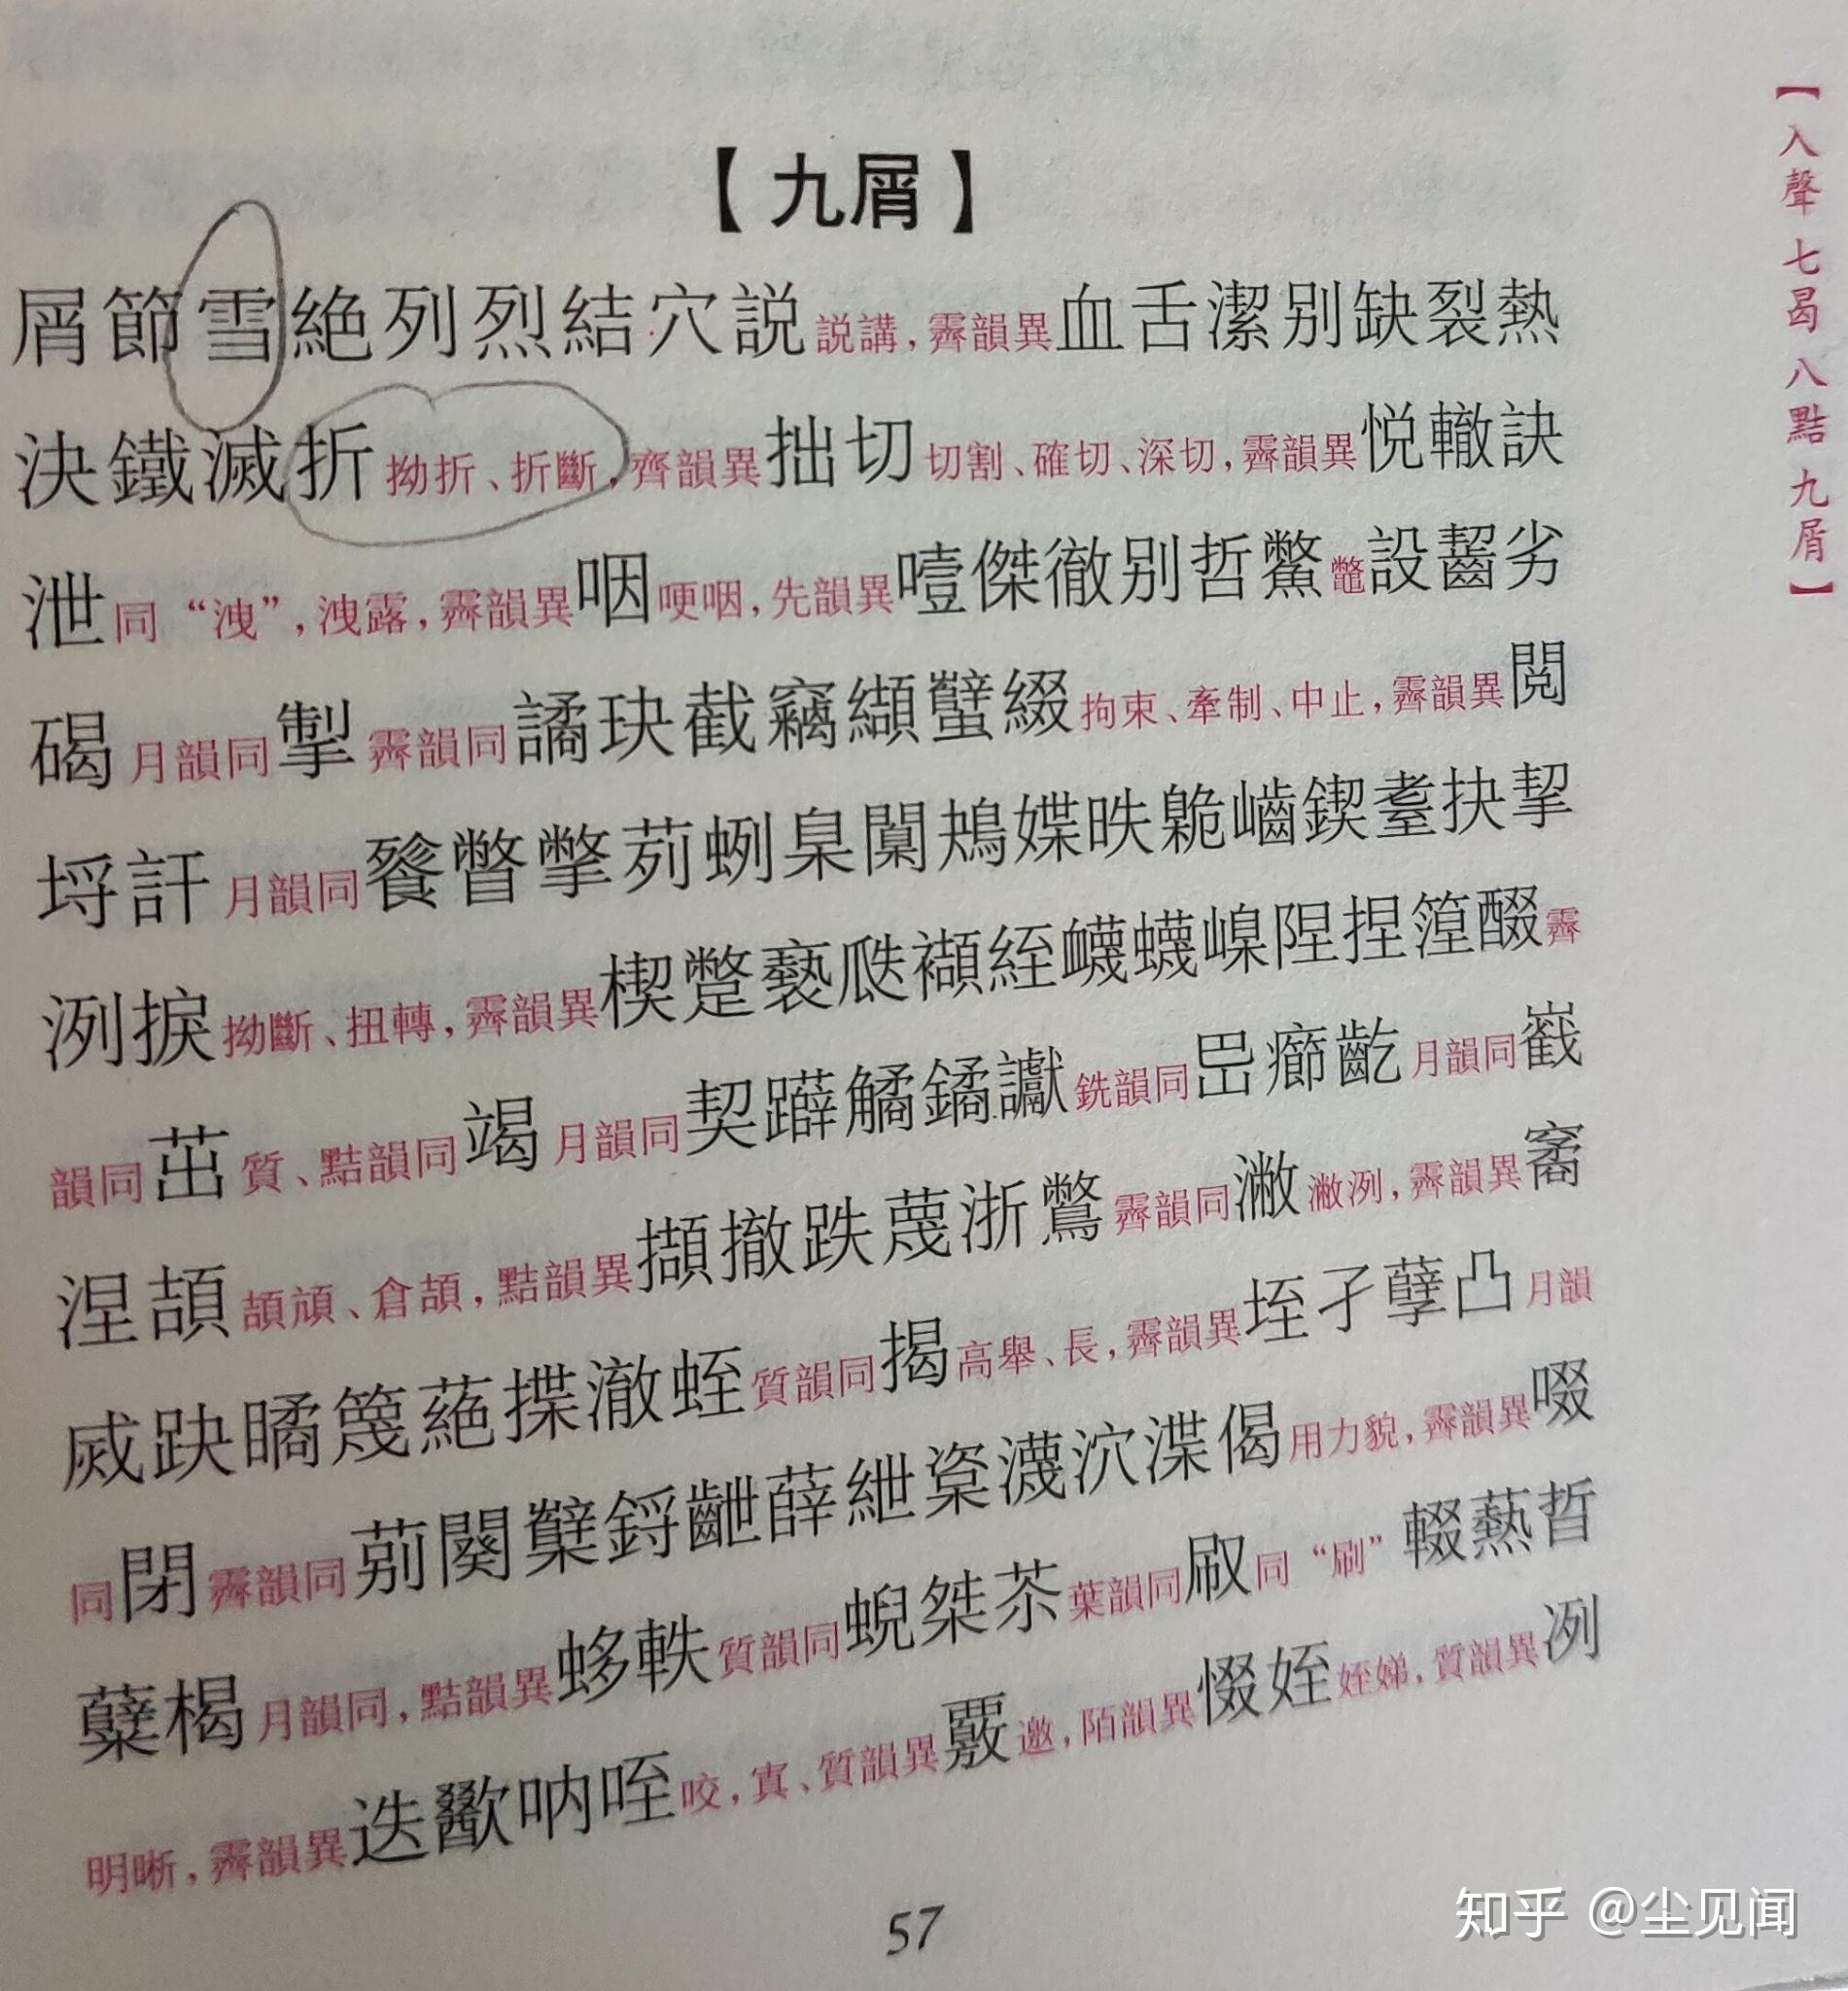 【九屑】
屑節雪絶列烈結穴説説講，霽韻異血舌潔别缺裂熱
決鐵滅折拗折、折斷，齊韻異拙切切割、確切、深切，霽韻異悦轍訣
泄同“洩”，洩露，霽韻異咽哽咽，先韻異噎傑徹别哲鱉鼈設齧劣
碣月韻同掣霽韻同譎玦截竊纈蠥綴拘束、牽制、中止，霽韻異閲
埒訐月韻同餮瞥撆茢蛚臬闑鴂媟昳臲嵽鍥耋抉挈
洌捩拗斷、扭轉，霽韻異楔蹩褻瓞襭絰衊蠛嵲陧捏篞醊霽
韻同茁質、黠韻同竭月韻同契躃觿鐍讞銑韻同岊癤齕月韻同嶻
涅頡頡頏、倉頡，黠韻異擷撤跌蔑浙鷩霽韻同潎潎洌，霽韻異窫
烕趹瞲篾蕝揲澈蛭質韻同揭高舉、長，霽韻異垤孑孽凸月韻
同閉霽韻同䓶闋糱鋝齛薛紲楶瀎泬渫偈用力貌，霽韻異啜
蘖楬月韻同，黠韻異蛥軼質韻同蜺桀苶葉韻同㕞同“刷”輟爇晢
明晰，霽韻異迭歠吶咥咬，寘、質韻異覈邀，陌韻異惙姪姪娣，質韻異冽
57
【入聲 七曷 八黠 九屑】
知乎 @尘见闻